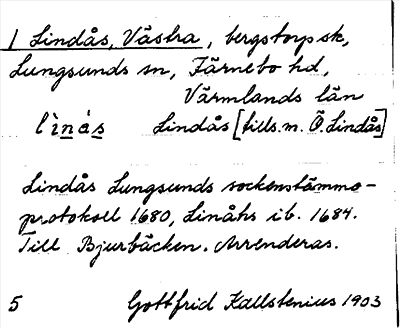 1 Lindås, Västra, bergstorpsk,
Lungsunds sn, Färnebo hd,
Värmlands län
lìnás Lindås [tills.m. Ö. Lindås]
Lindås Lungsunds sockenstämmo-
protokoll 1680, Linåhs ib. 1684.
Till Bjurbäcken. Arrenderas.
5 Gottfrid Kallstenius 1903